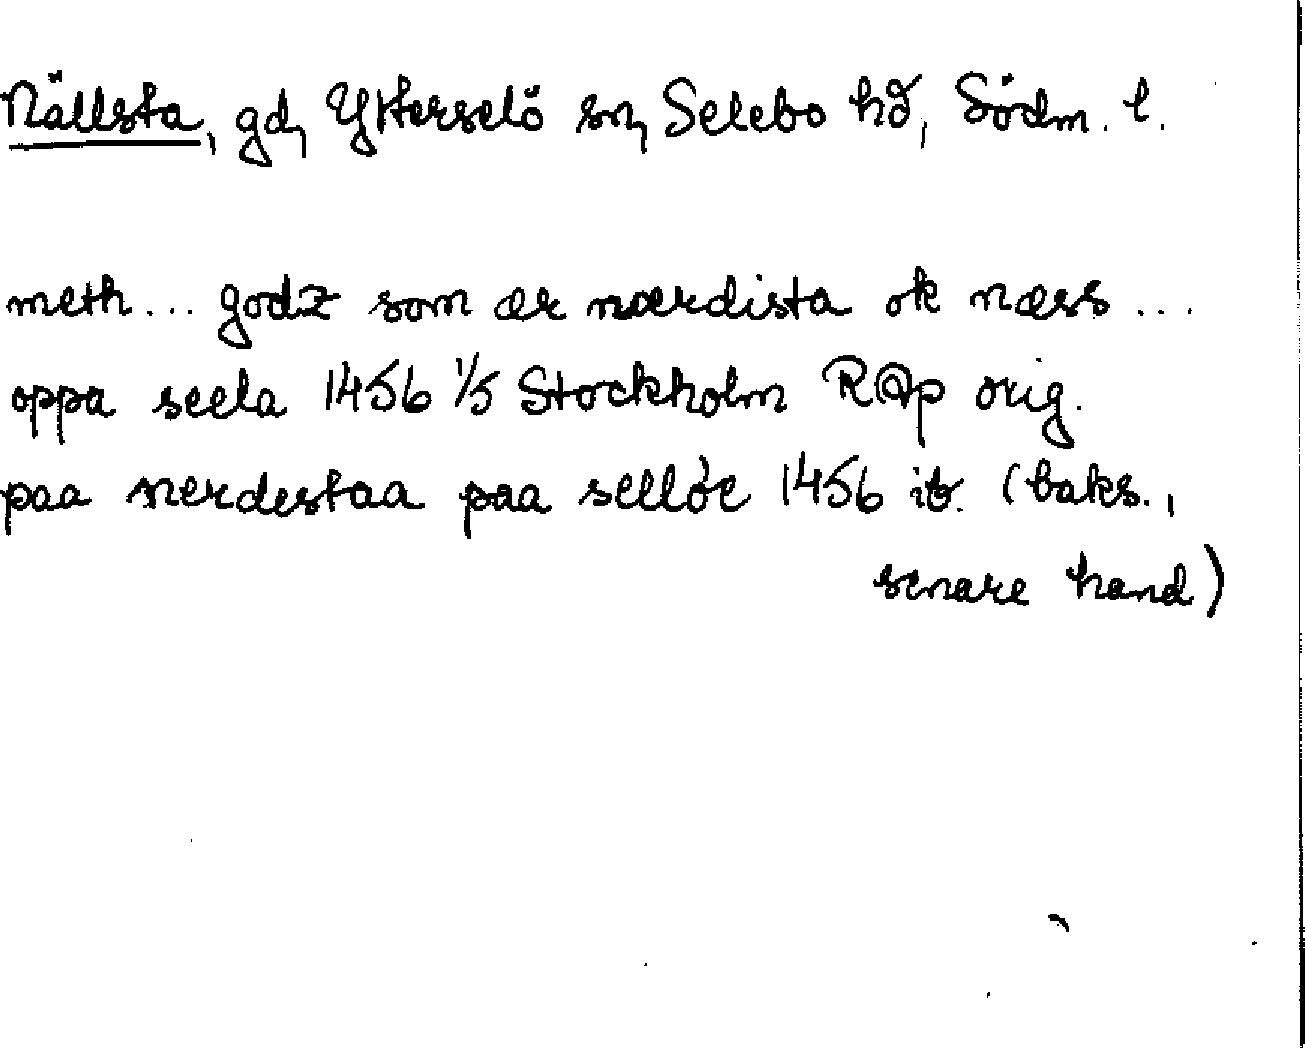 Nällsta, gd, Ytterselö sn, Selebo hd, Södm. l.
meth... godz som ær nærdista ok næss ...
oppa seela 1456 1/5 Stockholm RAp orig.
paa nerdestaa paa selløe 1456 ib. (baks.,
senare hand)